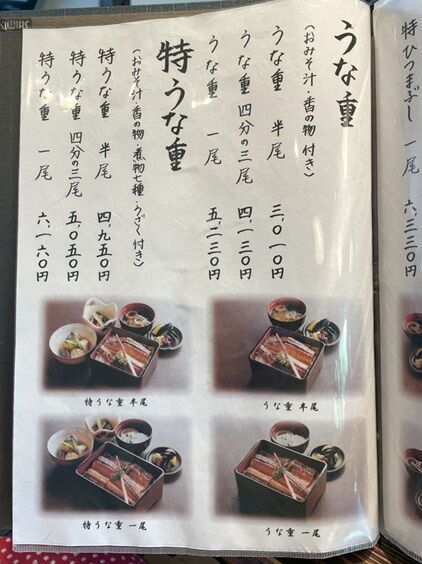 特ひつまぶし 一尾 六、三三〇円
うな重
(おみそ汁・香の物 付き)
うな重 半尾 三、〇一〇円
うな重 四分の三尾 四、一三〇円
うな重 一尾 五、二三〇円
特うな重
(おみそ汁・香の物・煮物七種・うざく付き)
特うな重 半尾 四、九五〇円
特うな重 四分の三尾 五、〇五〇円
特うな重 一尾 六、一六〇円
うな重 半尾
特うな重 半尾
うな重 一尾
特うな重 一尾